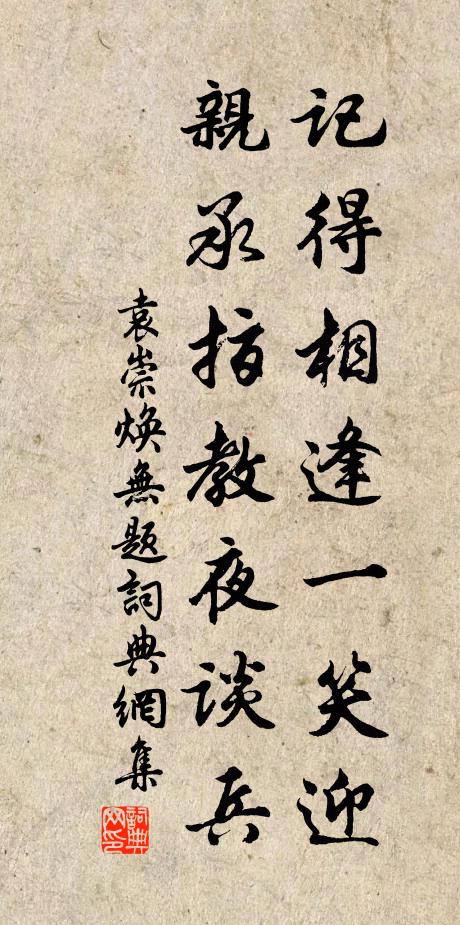 記得相逢一笑迎
親承指教夜談兵
袁崇煥無題詞典網集
詞典网印